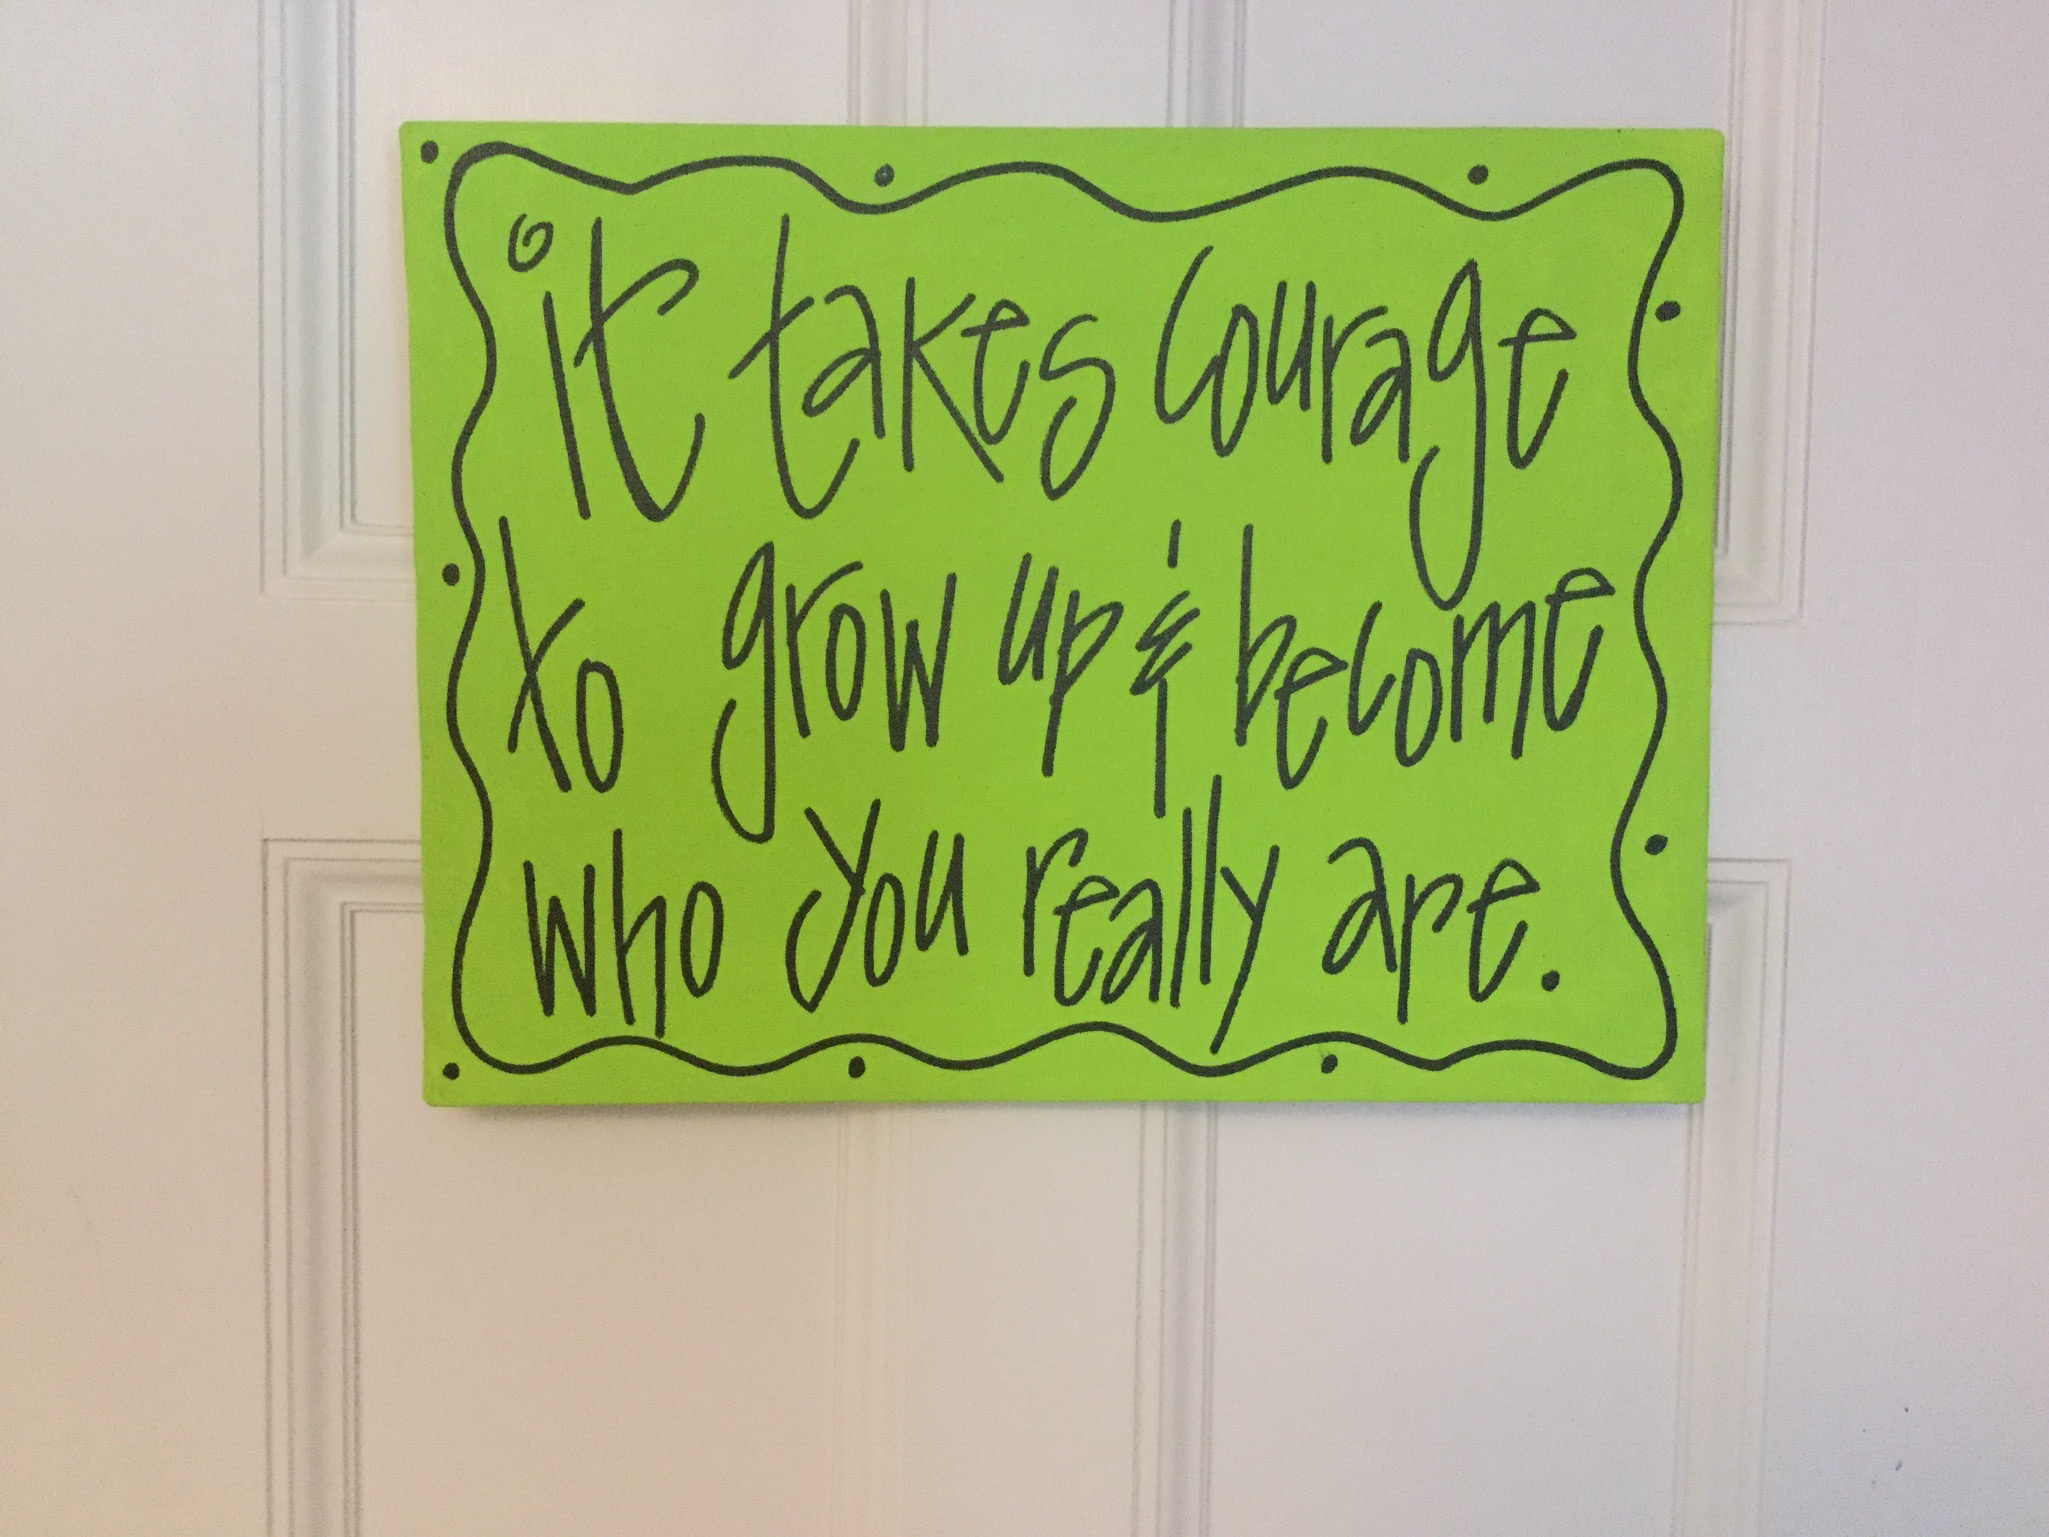 it takes courage
to grow up & become
who you really are.